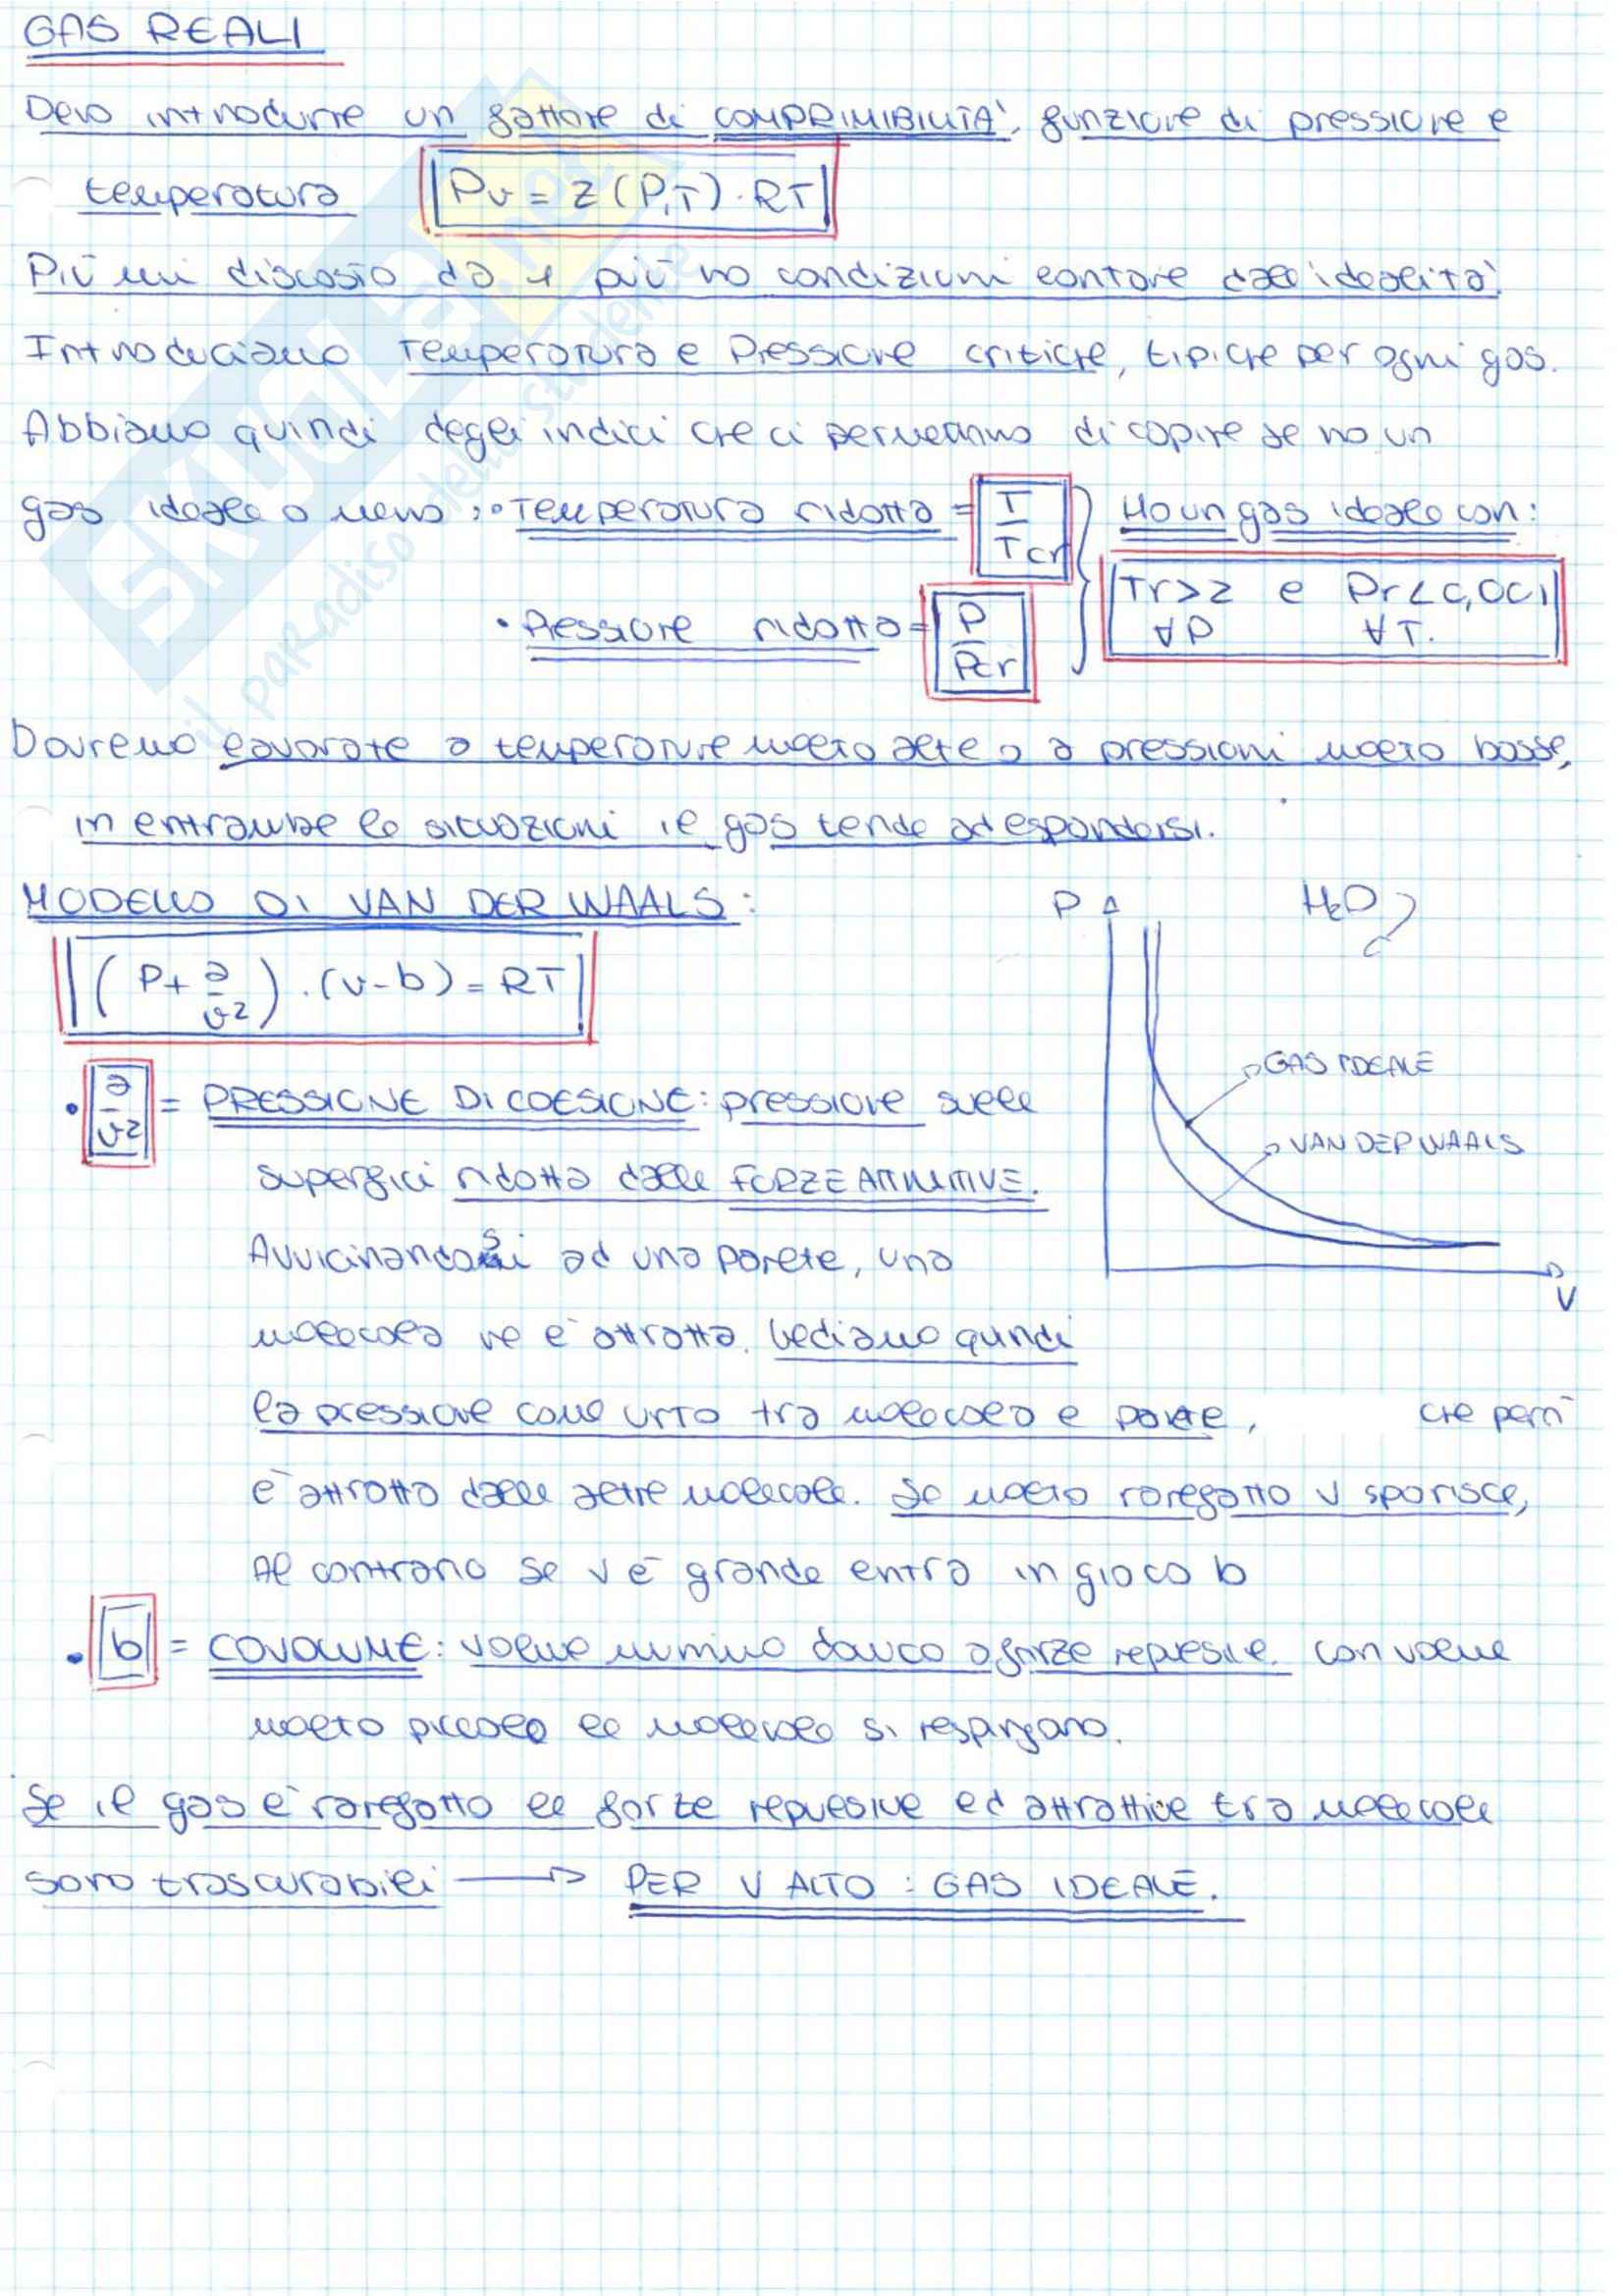 GAS REALI
Devo introdurre un fattore di COMPRIMIBILITA', funzione di pressione e
temperatura Pv = z (P,T) · RT
Più mi discosto da 1 più ho condizioni lontane dall'idealità.
Introduciamo Temperatura e Pressione critiche, tipiche per ogni gas.
Abbiamo quindi degli indici che ci permettono di capire se ho un
gas ideale o meno : • Temperatura ridotta = T/Tcr Ho un gas ideale con:
Tr>2 e Pr<0,001
∀P ∀T.
• Pressione ridotta = P/Pcr
Dovremo lavorare a temperature molto alte o a pressioni molto basse,
in entrambe le situazioni il gas tende ad espandersi.
MODELLO DI VAN DER WAALS:
(P + a/v²) · (v-b) = RT
P H₂O
GAS IDEALE
VAN DER WAALS
V
• a/v² = PRESSIONE DI COESIONE: pressione sulle
superfici ridotta dalle FORZE ATTRATTIVE.
Avvicinandosi ad una parete, una
molecola ne è attratta. Vediamo quindi
la pressione come urto tra molecola e parete, che però
è attratto dalle altre molecole. Se molto rarefatto v sparisce,
Al contrario se v è grande entra in gioco b
• b = COVOLUME: volume minimo dovuto a forze repulsive. Con volume
molto piccolo le molecole si respingono.
Se il gas è rarefatto le forze repulsive ed attrattice tra molecole
sono trascurabili → PER V ALTO : GAS IDEALE.
SKUOLA.net
il paradiso dello studente